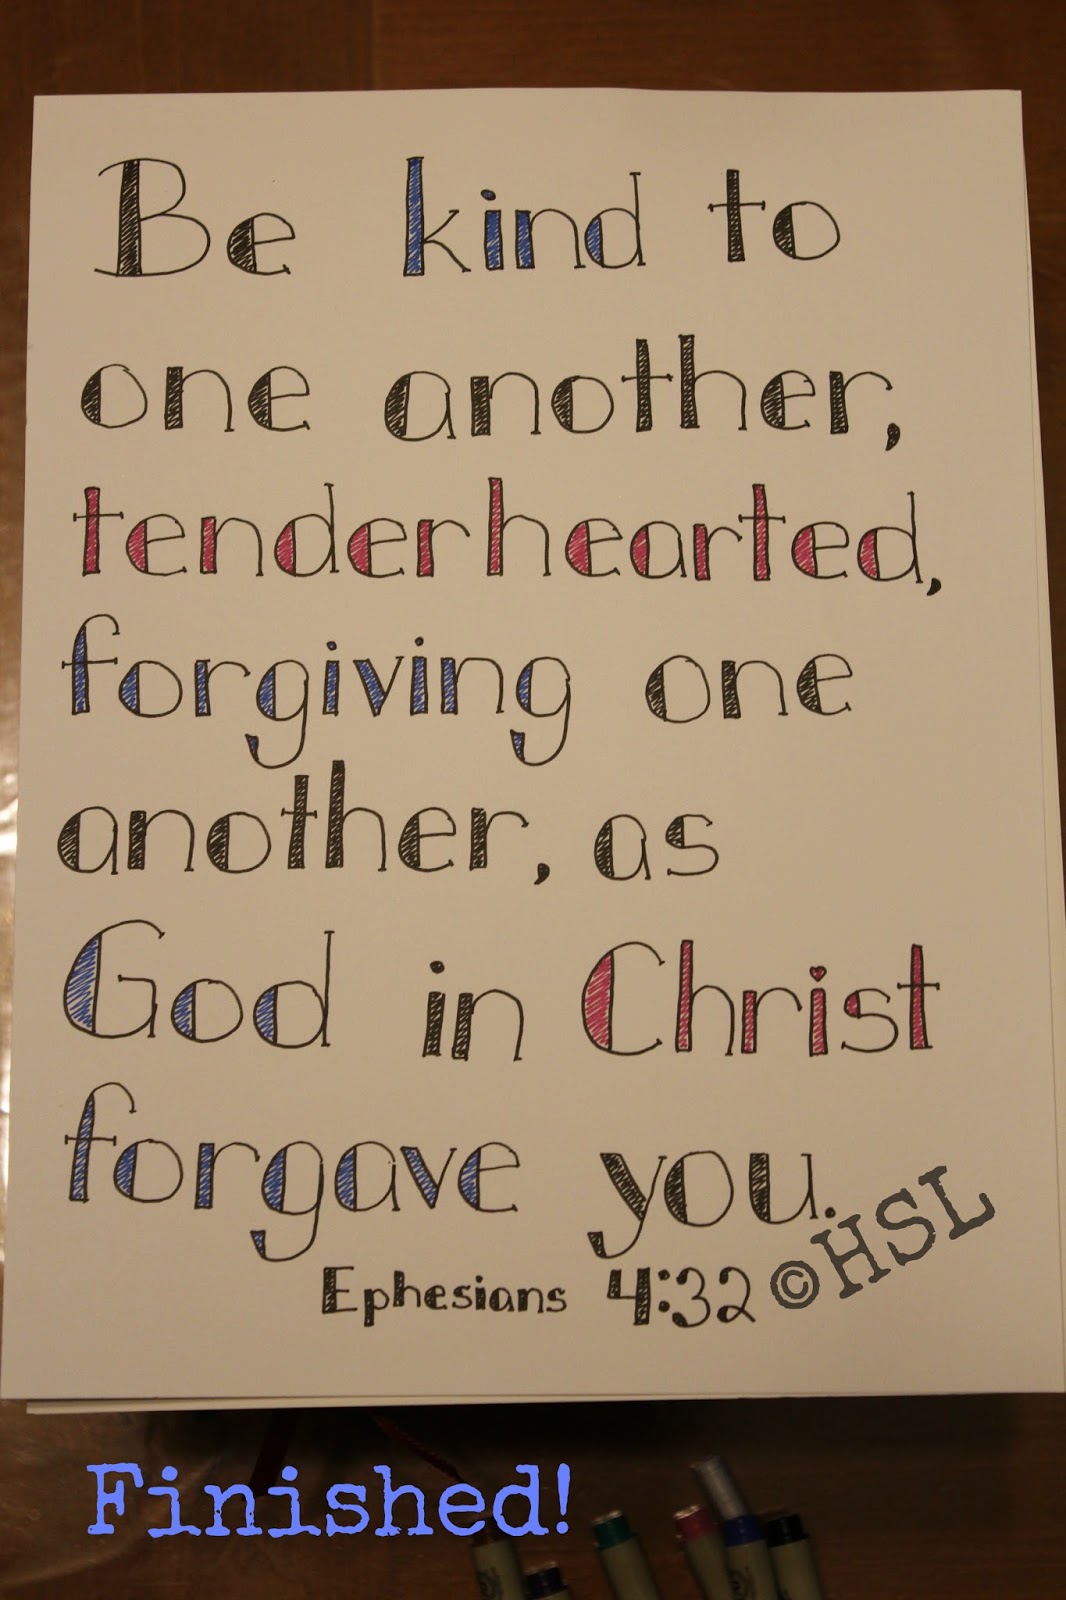 Be kind to
one another,
tenderhearted,
forgiving one
another, as
God in Christ
forgave you.
Ephesians 4:32
©HSL
Finished!